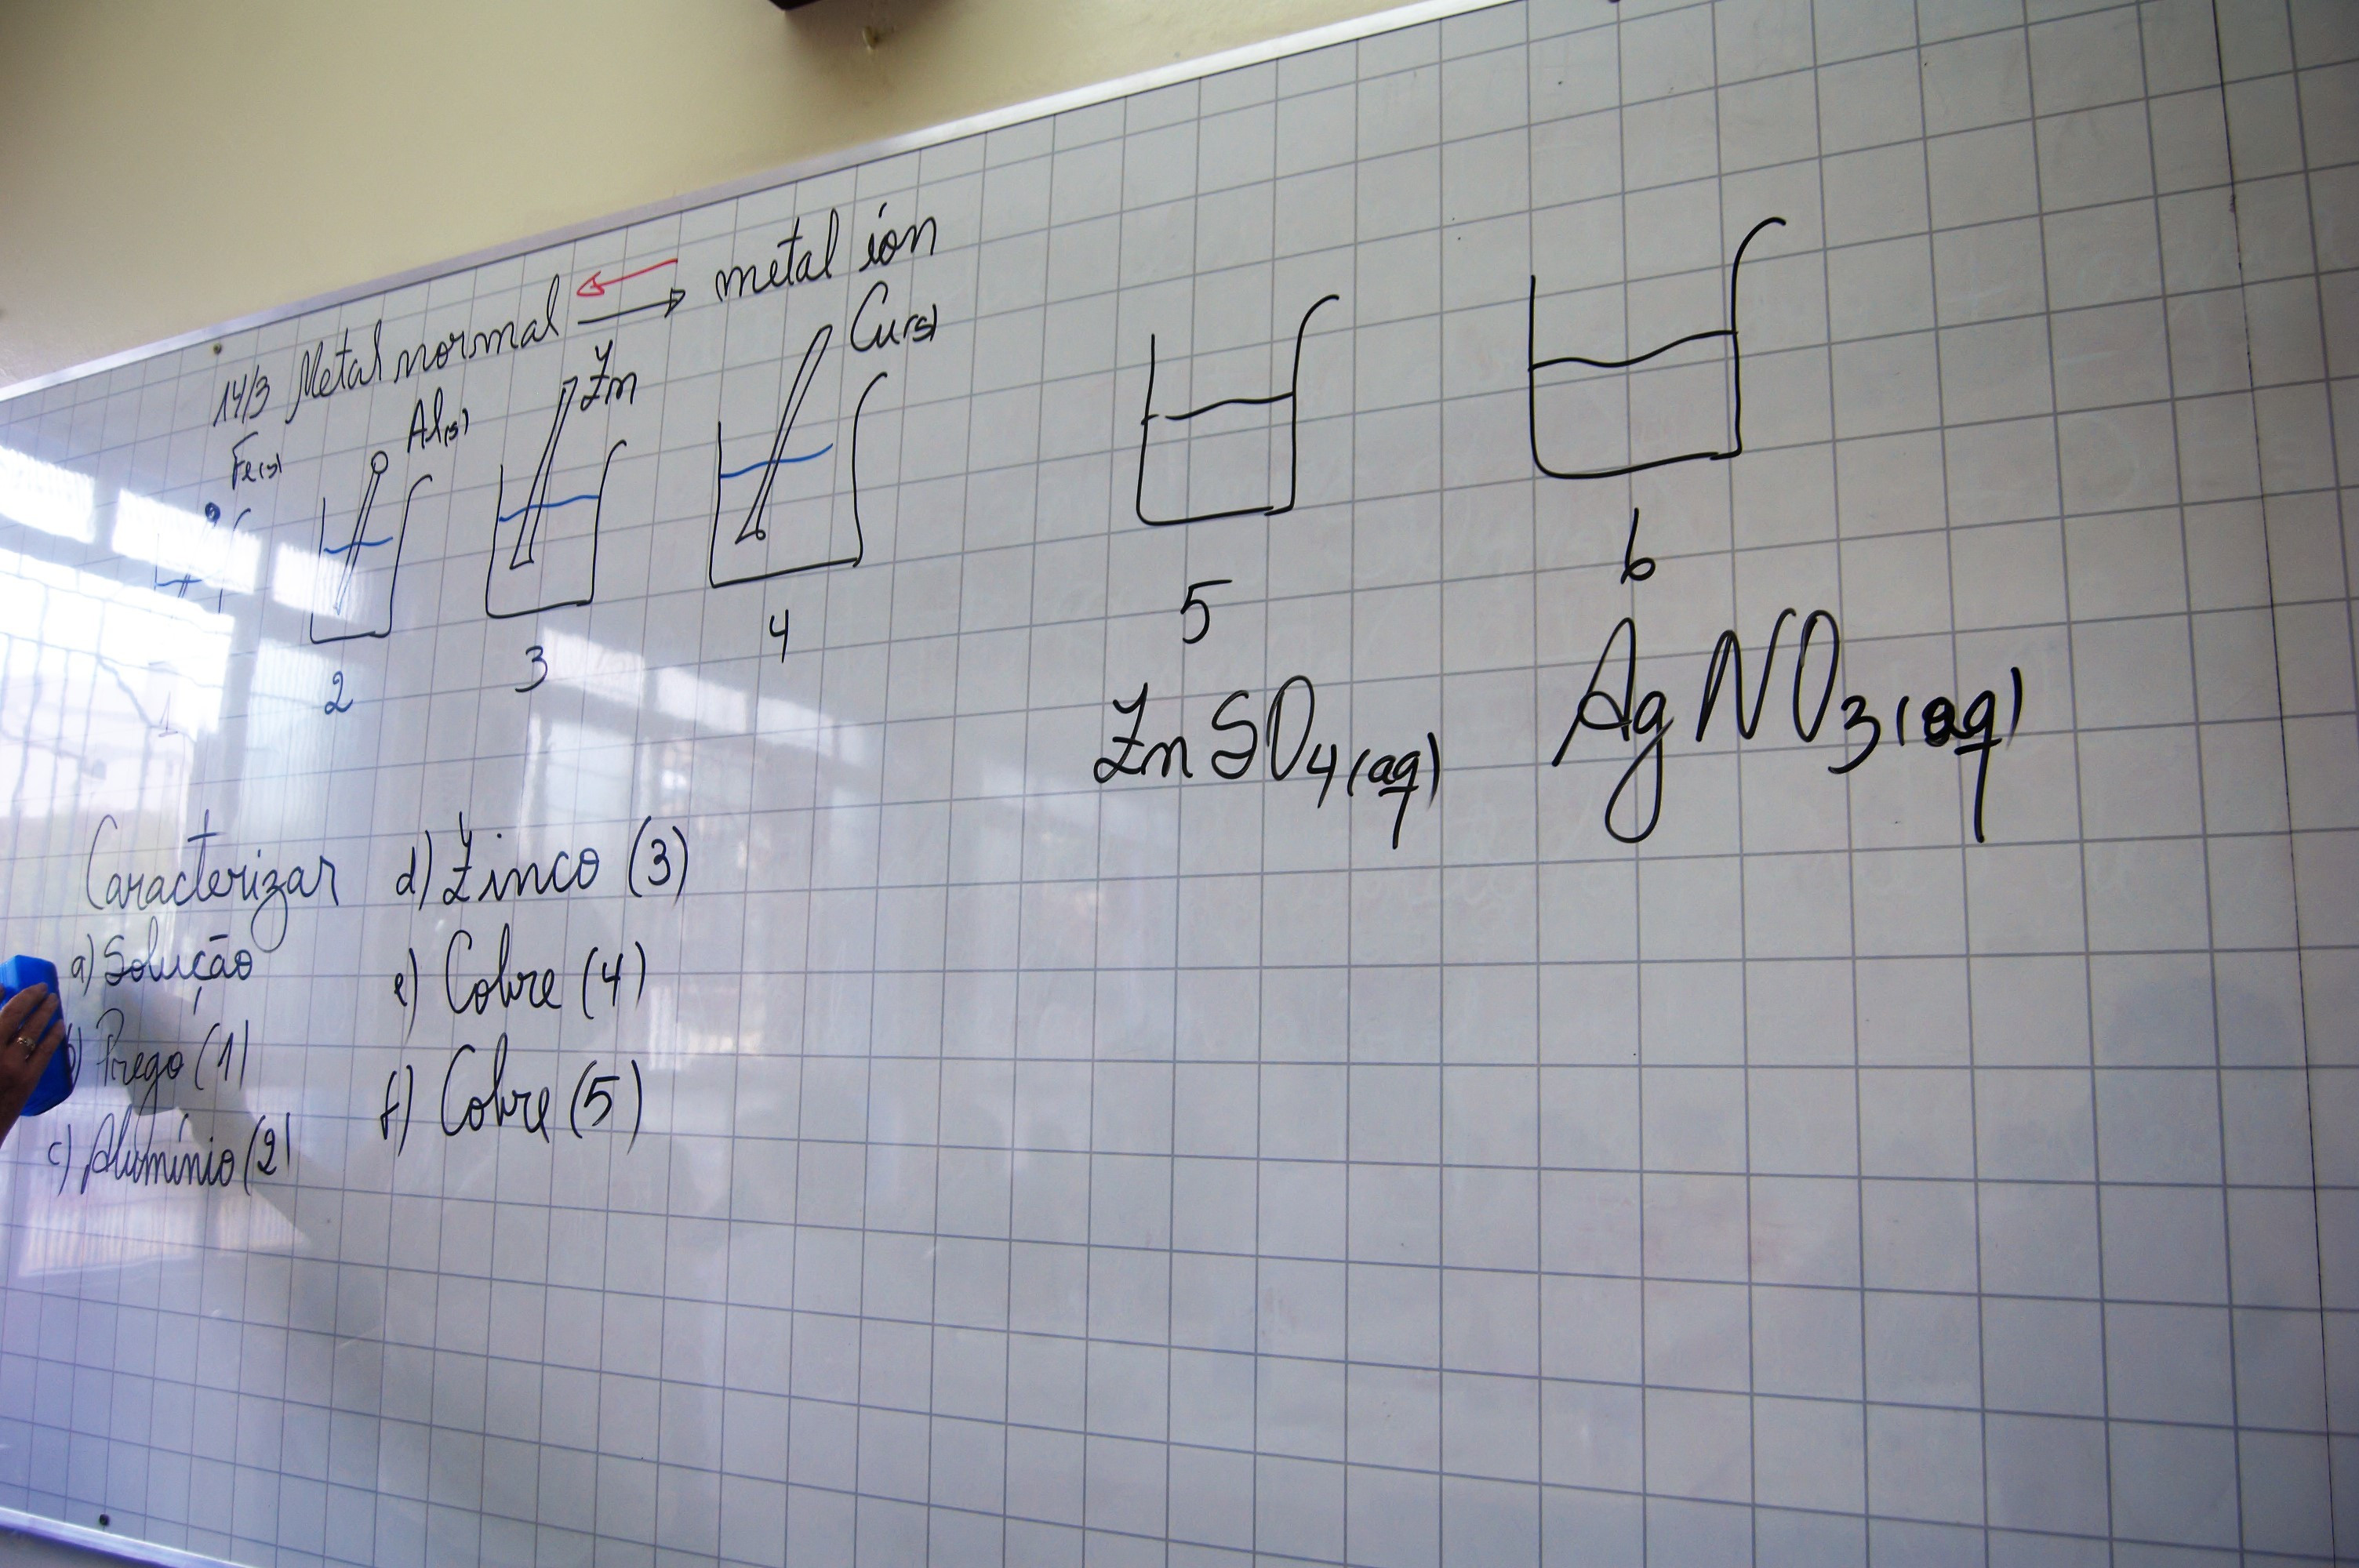 14/3 Metal normal metal íon
Fe(s) Al(s) Zn Cu(s)
1 2 3 4 5 6
ZnSO4(aq) AgNO3(aq)
Caracterizar
a) Solução
b) Prego (1)
c) Alumínio (2)
d) Zinco (3)
e) Cobre (4)
f) Cobre (5)